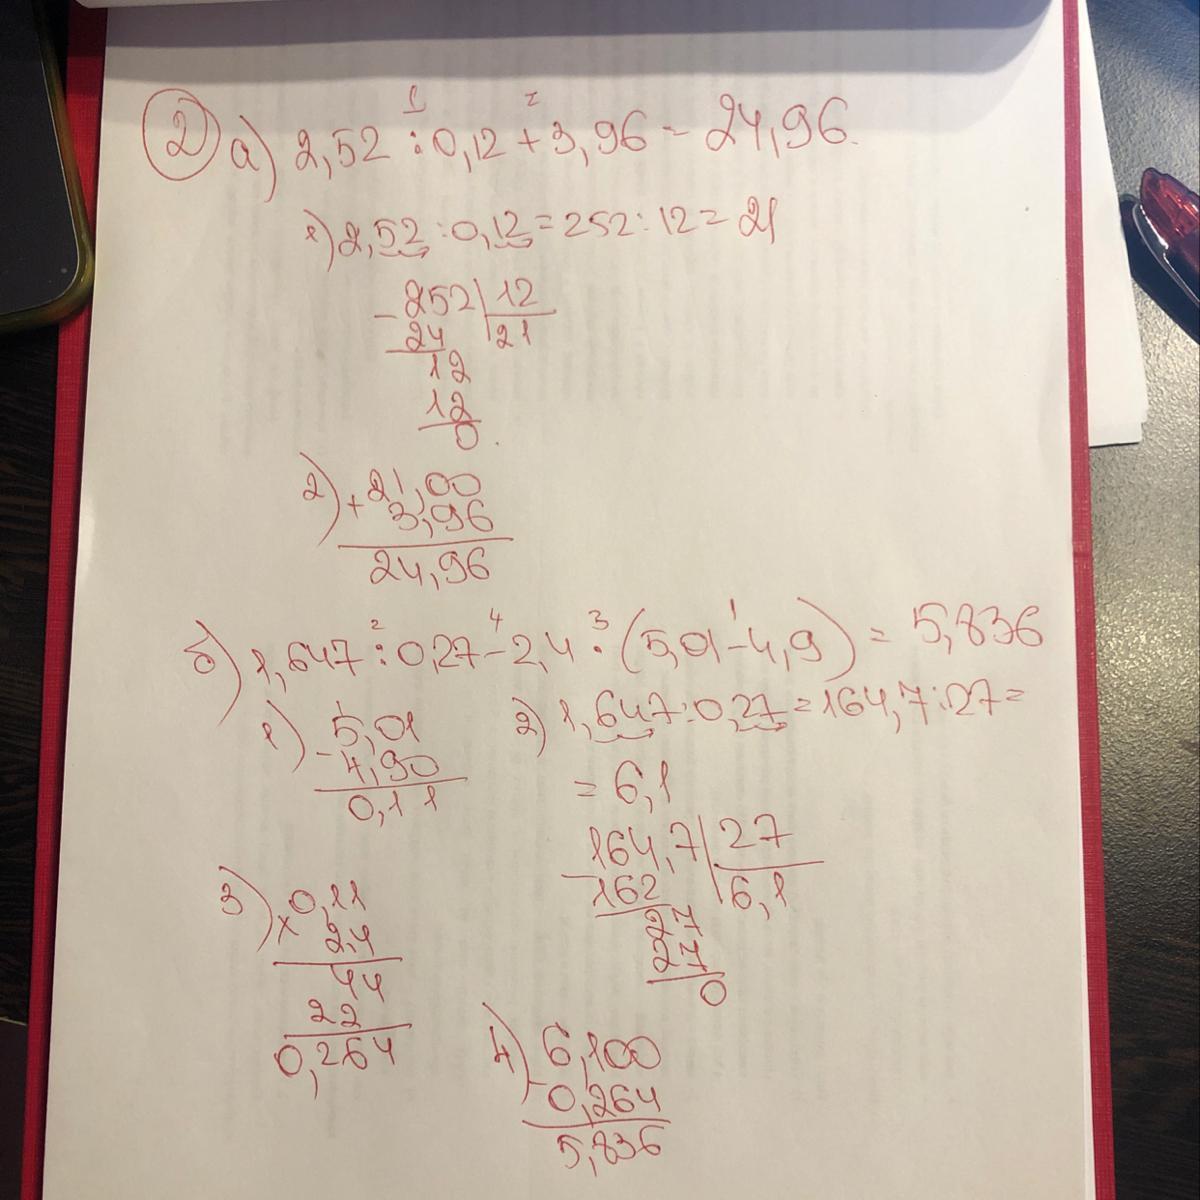 2) а) 2,52 : 0,12 + 3,96 = 24,96.
1 2
1) 2,52 : 0,12 = 252 : 12 = 21
- 252 | 12
24 | 21
12
12
0.
2) + 21,00
3,96
24,96
б) 1,647 : 0,27 - 2,4 · (5,01 - 4,9) = 5,836
2 4 3 1
1) - 5,01
4,90
0,11
2) 1,647 : 0,27 = 164,7 : 27 =
= 6,1
- 164,7 | 27
162 | 6,1
27
27
0
3) x 0,11
2,4
44
22
0,264
4) - 6,100
0,264
5,836